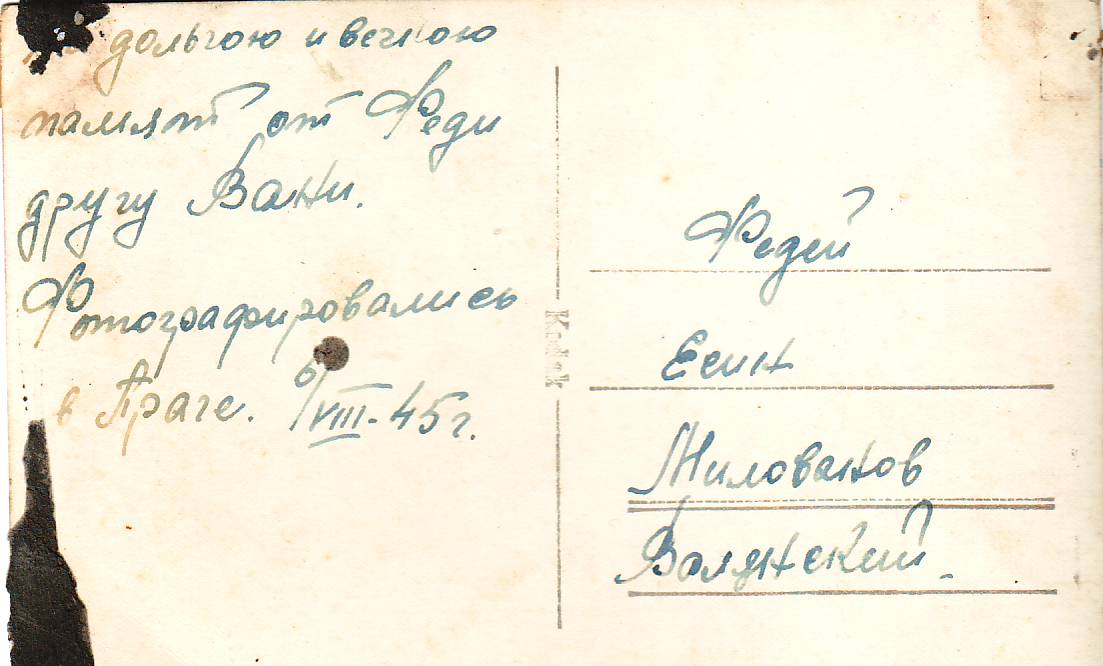 дольгою и вечною
памят от Феди
другу Вани.
Фотографировались
в Праге. 6/VIII-45г.
Kodak
Федей
Есин
Милованов
Волынский.